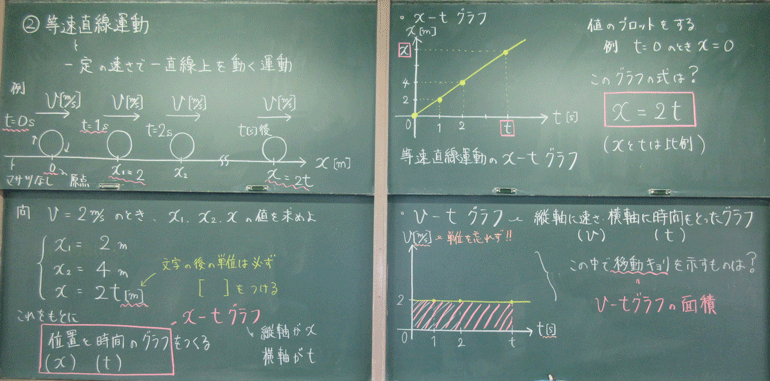 ② 等速直線運動
一定の速さで一直線上を動く運動
例
V[m/s] V[m/s] V[m/s] V[m/s]
t=0s t=1s t=2s t[s]後
0 x₁=2 x₂ x=2t x[m]
マサツなし 原点
問 V=2m/sのとき、x₁、x₂、xの値を求めよ
x₁ = 2 m
x₂ = 4 m
x = 2t[m]
文字の後の単位は必ず
[ ]をつける
これをもとに
位置と時間のグラフをつくる
(x) (t)
x-tグラフ
縦軸がx
横軸がt
・x-tグラフ
x[m]
x
4
2
0 1 2 t t[s]
等速直線運動のx-tグラフ
値のプロットをする
例 t=0のときx=0
このグラフの式は?
x=2t
(xとtは比例)
・V-tグラフ… 縦軸に速さ、横軸に時間をとったグラフ
(V) (t)
V[m/s] ← 単位を忘れず!!
2
0 1 2 t t[s]
この中で移動キョリを示すものは?
V-tグラフの面積